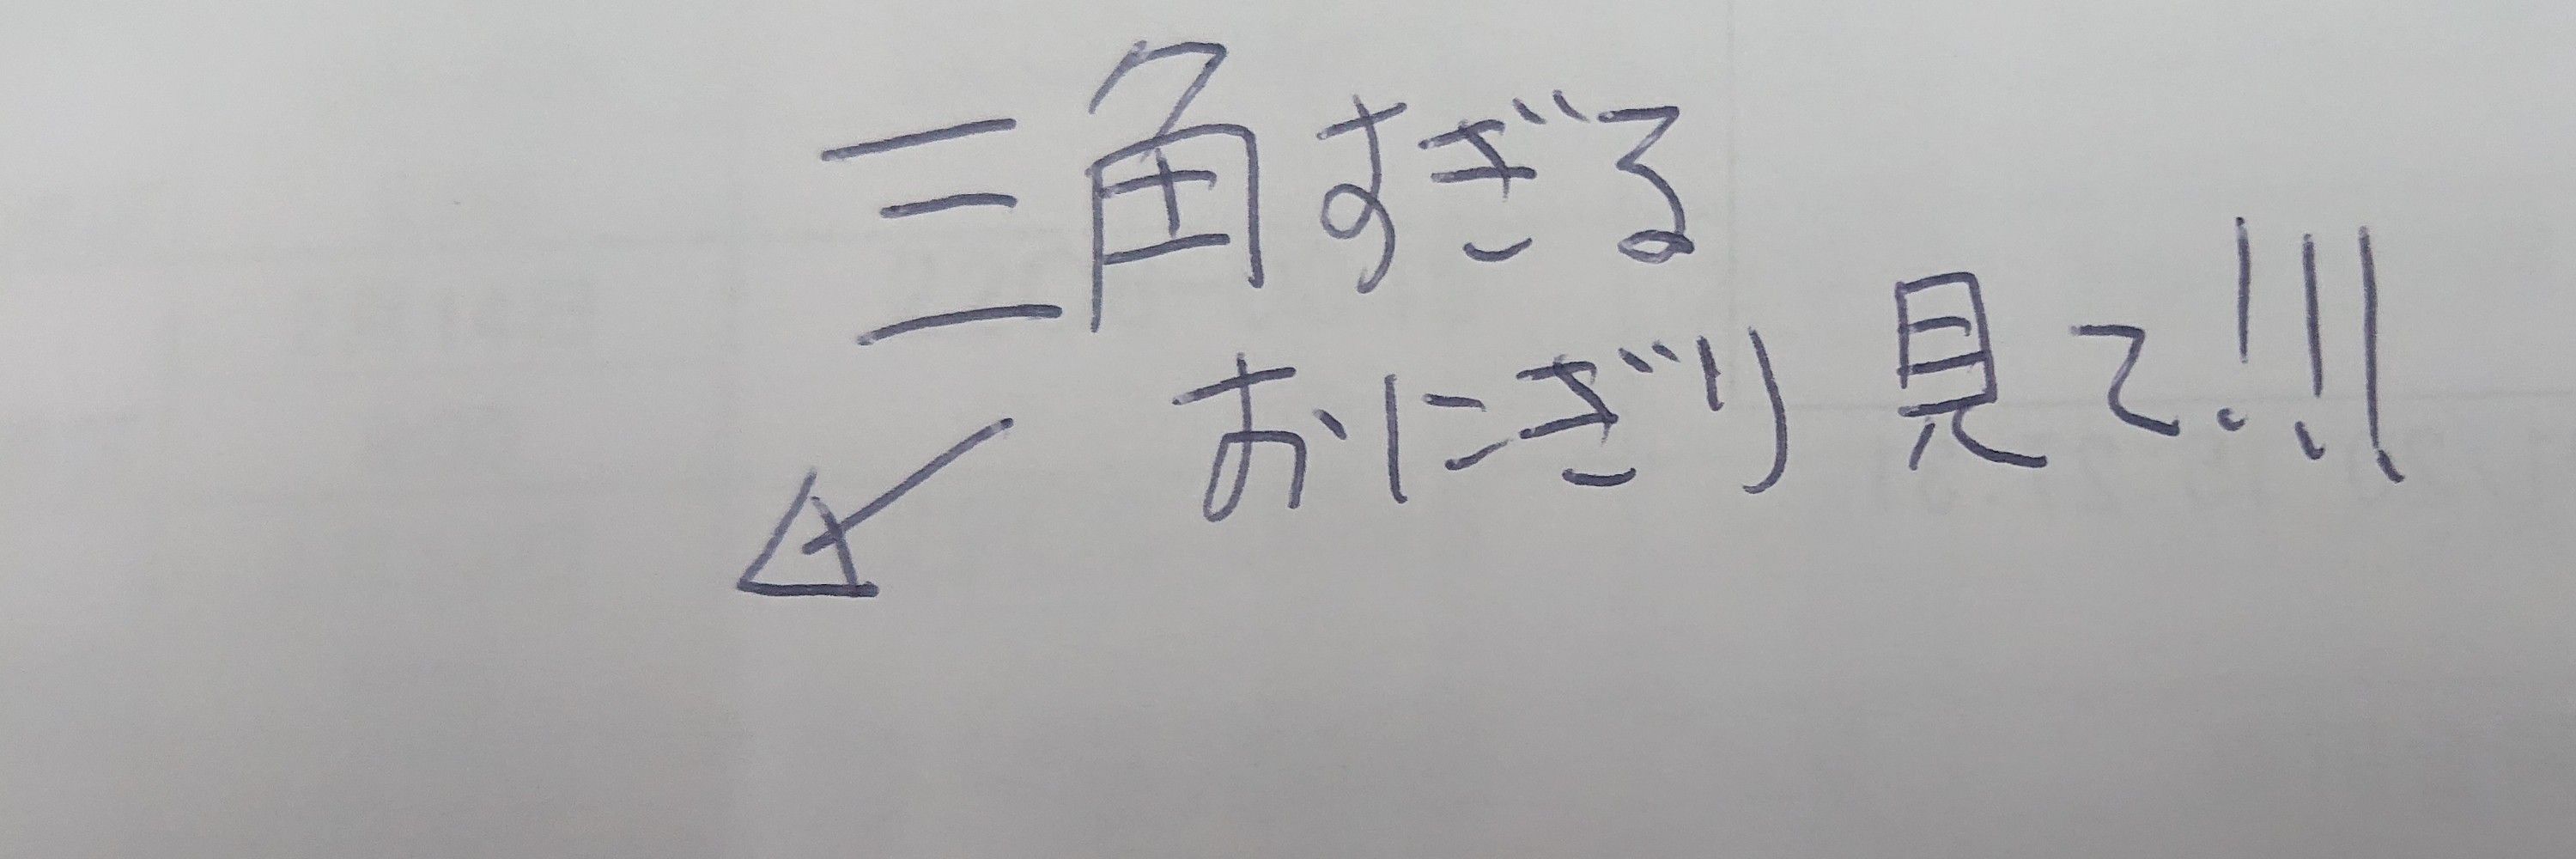 三角すぎる
おにぎり 見て!!!